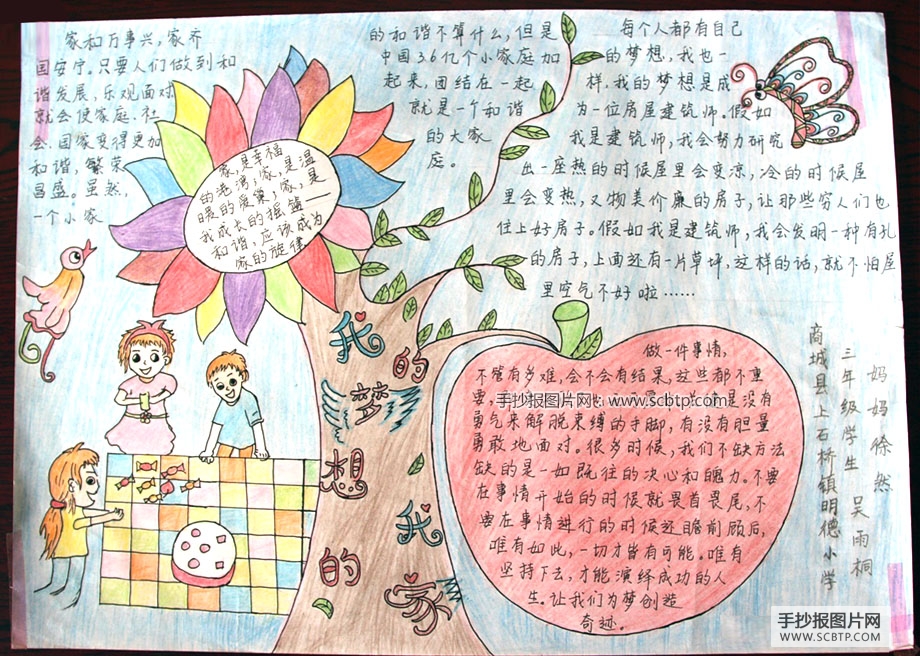 家和万事兴，家齐
国安宁。只要人们做到和
谐发展，乐观面对
就会使家庭、社
会、国家变得更加
和谐，繁荣
昌盛。虽然，
一个小家
的和谐不算什么，但是
中国3.6亿个小家庭加
起来，团结在一起，
就是一个和谐
的大家
庭。
每个人都有自己
的梦想，我也一
样，我的梦想是成
为一位房屋建筑师。假如
我是建筑师，我会努力研究
出一座热的时候屋里会变凉，冷的时候屋
里会变热，又物美价廉的房子，让那些穷人们也
住上好房子。假如我是建筑师，我会发明一种有孔
的房子，上面还有一片草坪，这样的话，就不怕屋
里空气不好啦……
家，是幸福
的港湾，家，是温
暖的展翼，家，是
我成长的摇篮——
和谐，应该成为
家的旋律
我的梦想
我的家
做一件事情，
不管有多难，会不会有结果，这些都不重
要。
是没有
勇气来解脱束缚的手脚，有没有胆量
勇敢地面对。很多时候，我们不缺方法
缺的是一如既往的决心和魄力。不要
在事情开始的时候就畏首畏尾，不
要在事情进行的时候还瞻前顾后，
唯有如此，一切才皆有可能。唯有
坚持下去，才能演绎成功的人
生。让我们为梦创造
奇迹。
商城县上石桥镇明德小学
三年级学生 吴雨桐
妈妈徐然
手抄报图片网 www.scbtp.com
手抄报图片网
WWW.SCBTP.COM